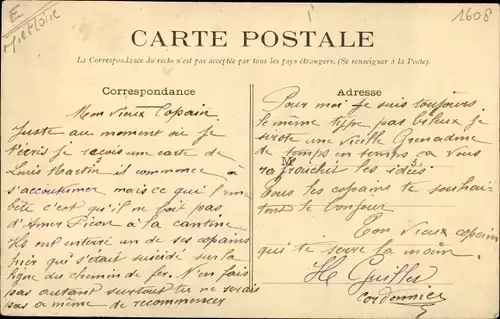 1608
CARTE POSTALE
La Correspondance du recto n'est pas acceptée par tous les pays étrangers. (Se renseigner à la Poste).
Correspondance
Mon vieux Copain
Juste au moment où je
t'écris je reçois une carte de
Louis Martin il commence à
s'accoutumer mais ce qui l'em
bête c'est qu'il ne boit pas
d'Amer Picon à la cantine
Ils ont enterré un de ses copains
hier qui s'était suicidé sur la
ligne du chemin de fer. N'en fais
pas autant surtout tu ne serais
pas à même de recommencer
Adresse
Pour moi je suis toujours
le même type pas bileux je
sirote une vieille Grenadine
de temps en temps ça vous
M
rafraichit les idées
Tous les copains te souhai-
tent le bonjour
Ton vieux copain
qui te serre la main
Cordonnier